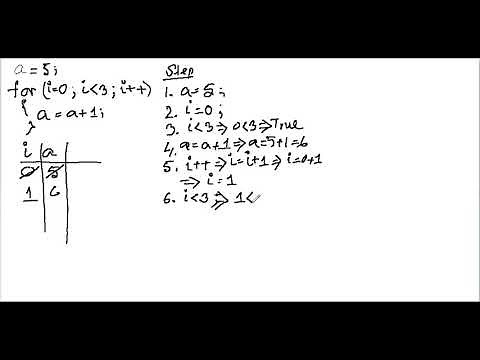 a = 5;
for (i=0; i<3; i++)
{
a = a+1;
}
i a
0 5
1 6
Step
1. a=5;
2. i=0;
3. i<3 ⇒ 0<3 ⇒ True
4. a=a+1 ⇒ a=5+1=6
5. i++ ⇒ i=i+1 ⇒ i=0+1
⇒ i=1
6. i<3 ⇒ 1<